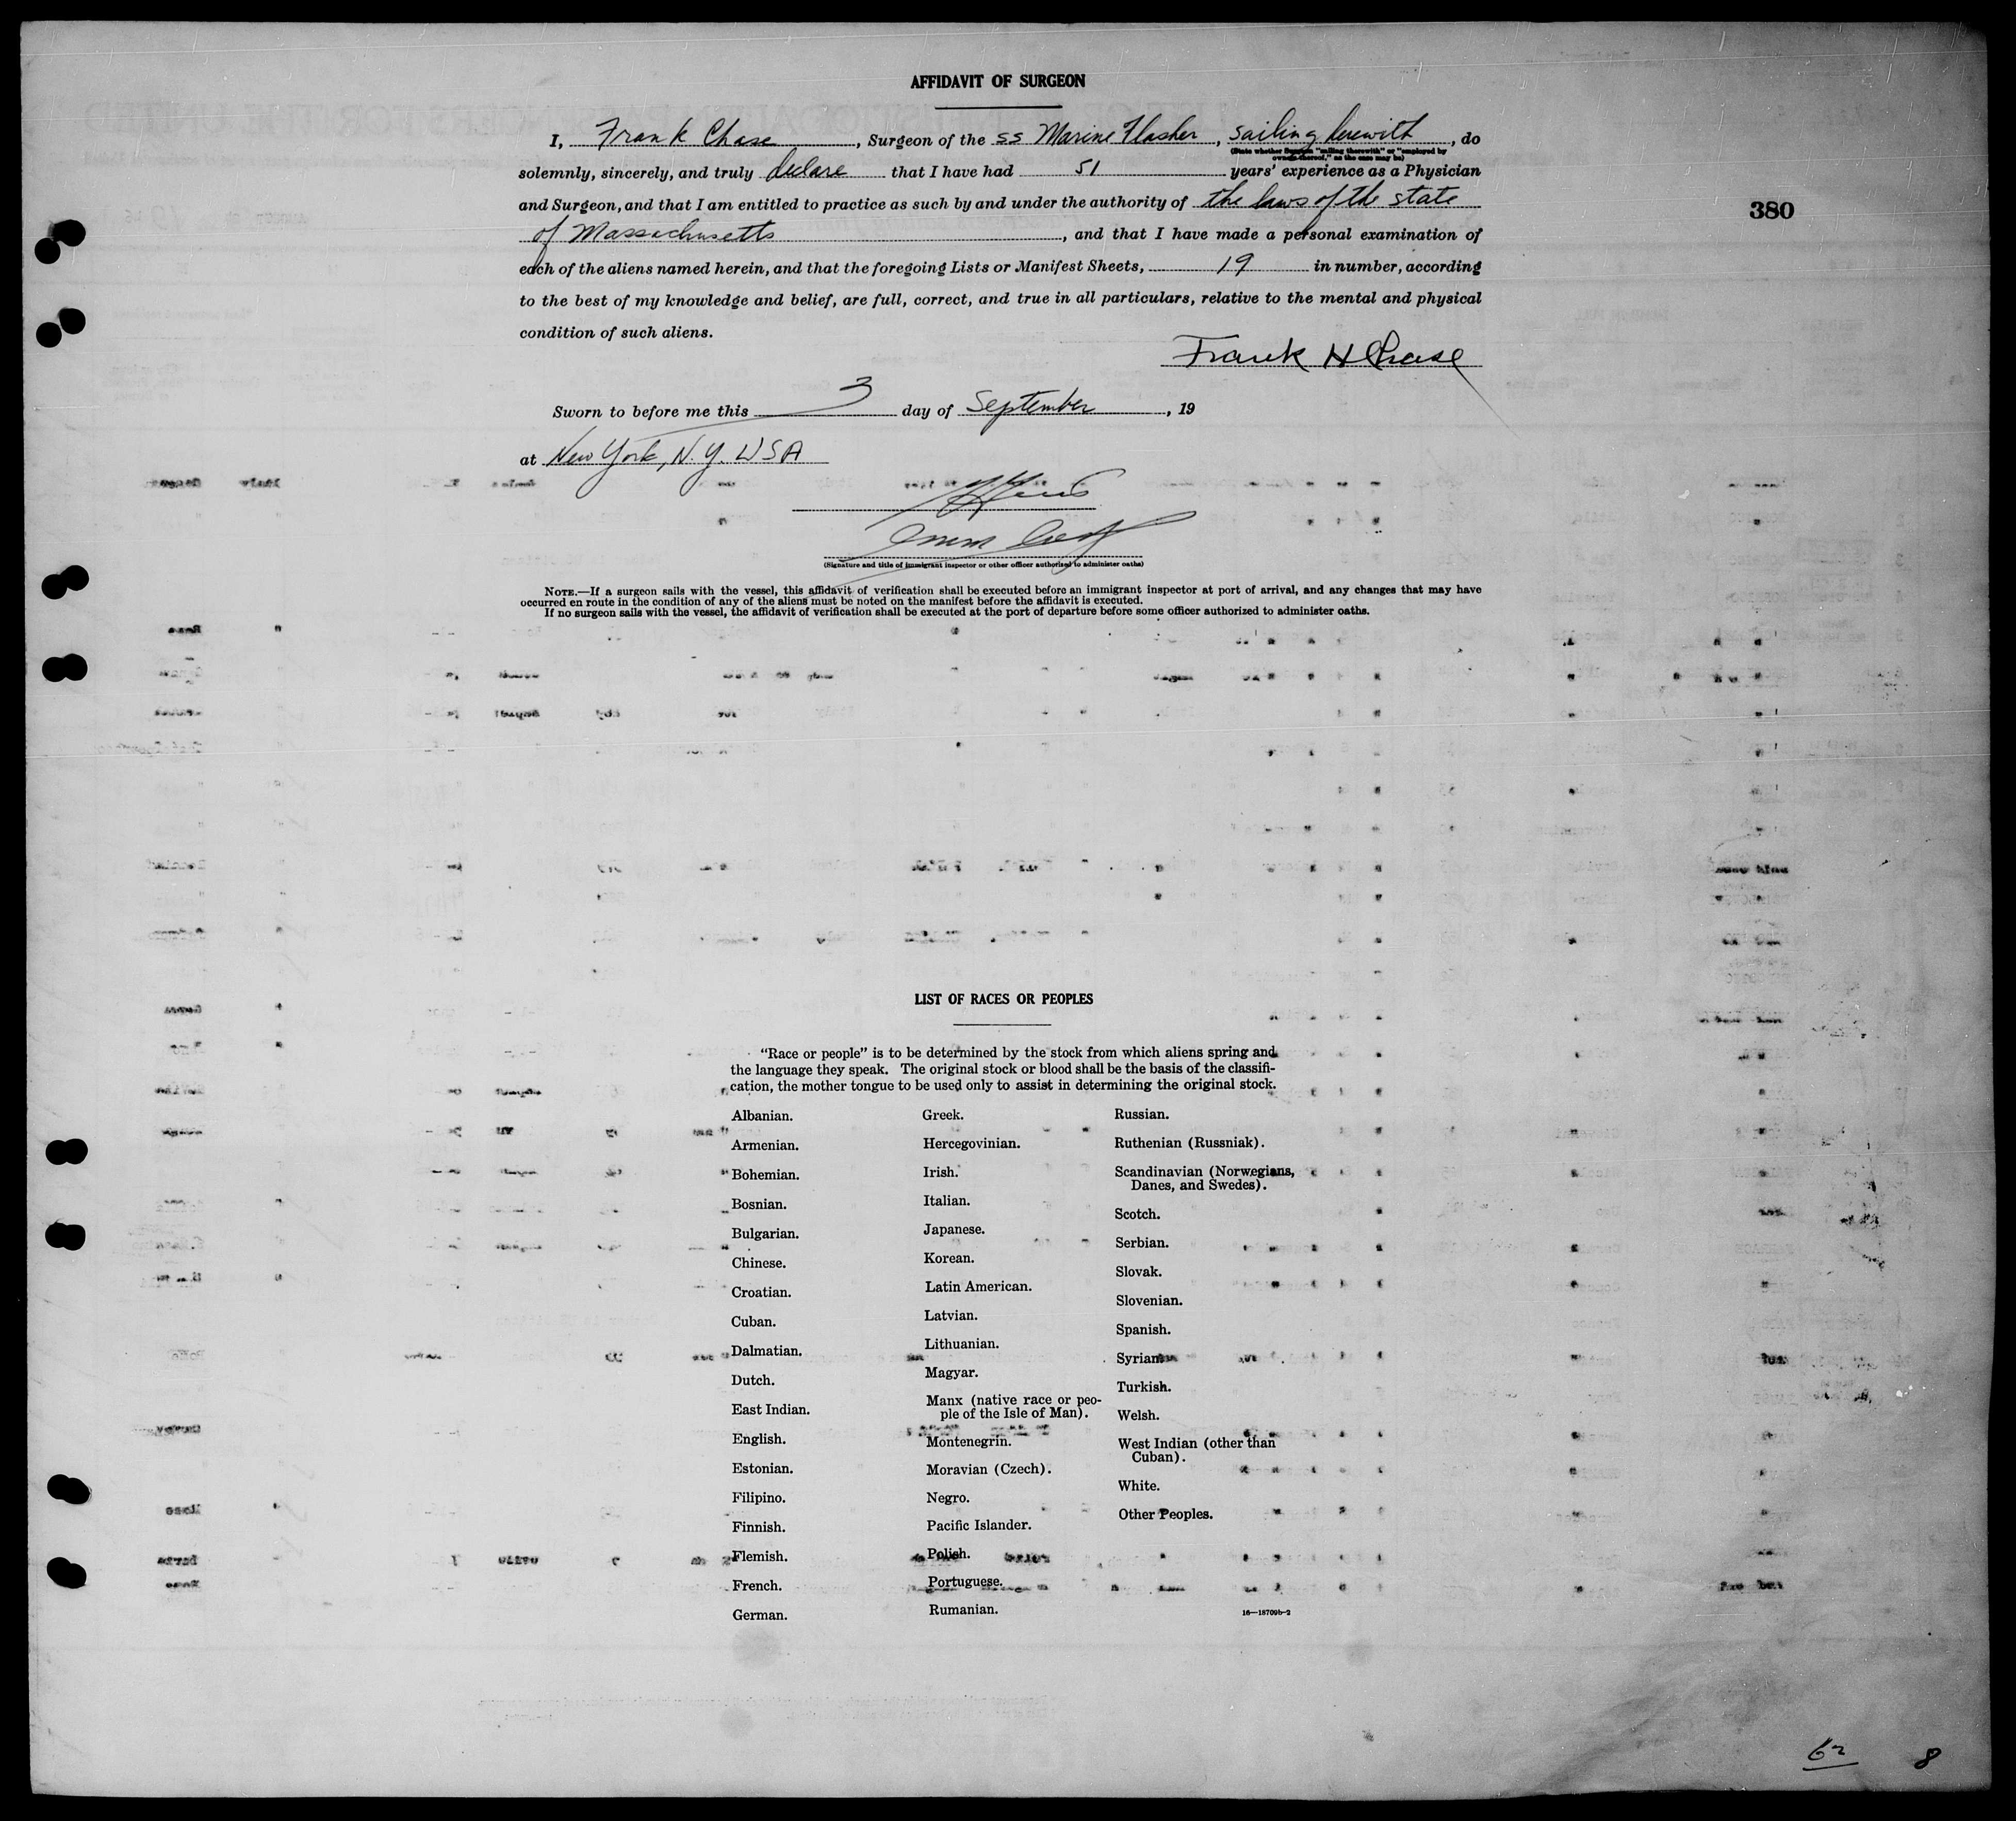 AFFIDAVIT OF SURGEON
380
I, Frank Chase, Surgeon of the SS Marine Flasher, sailing herewith, do
(State whether Surgeon "sailing therewith" or "employed by
owners thereof," as the case may be)
solemnly, sincerely, and truly declare that I have had 51 years' experience as a Physician
and Surgeon, and that I am entitled to practice as such by and under the authority of the laws of the state
of Massachusetts, and that I have made a personal examination of
each of the aliens named herein, and that the foregoing Lists or Manifest Sheets, 19 in number, according
to the best of my knowledge and belief, are full, correct, and true in all particulars, relative to the mental and physical
condition of such aliens.
Frank H Chase
Sworn to before me this 3 day of September, 19
at New York, N.Y. USA
(Signature and title of immigrant inspector or other officer authorized to administer oaths)
NOTE.—If a surgeon sails with the vessel, this affidavit of verification shall be executed before an immigrant inspector at port of arrival, and any changes that may have
occurred en route in the condition of any of the aliens must be noted on the manifest before the affidavit is executed.
If no surgeon sails with the vessel, the affidavit of verification shall be executed at the port of departure before some officer authorized to administer oaths.
LIST OF RACES OR PEOPLES
"Race or people" is to be determined by the stock from which aliens spring and
the language they speak. The original stock or blood shall be the basis of the classifi-
cation, the mother tongue to be used only to assist in determining the original stock.
Albanian.
Armenian.
Bohemian.
Bosnian.
Bulgarian.
Chinese.
Croatian.
Cuban.
Dalmatian.
Dutch.
East Indian.
English.
Estonian.
Filipino.
Finnish.
Flemish.
French.
German.
Greek.
Hercegovinian.
Irish.
Italian.
Japanese.
Korean.
Latin American.
Latvian.
Lithuanian.
Magyar.
Manx (native race or peo-
ple of the Isle of Man).
Montenegrin.
Moravian (Czech).
Negro.
Pacific Islander.
Polish.
Portuguese.
Rumanian.
Russian.
Ruthenian (Russniak).
Scandinavian (Norwegians,
Danes, and Swedes).
Scotch.
Serbian.
Slovak.
Slovenian.
Spanish.
Syrian.
Turkish.
Welsh.
West Indian (other than
Cuban).
White.
Other Peoples.
16—18709b-2
8